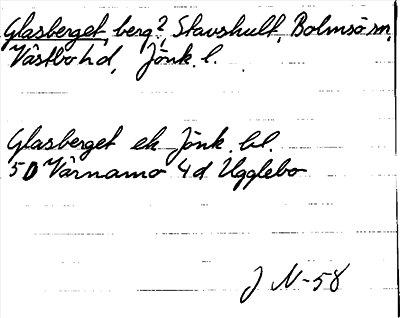 Glasberget, berg?, Stavshult, Bolmsö sn,
Västbo hd, Jönk. l.
Glasberget ek Jönk. bl.
5D Värnamo 4d Ugglebo
J N-58